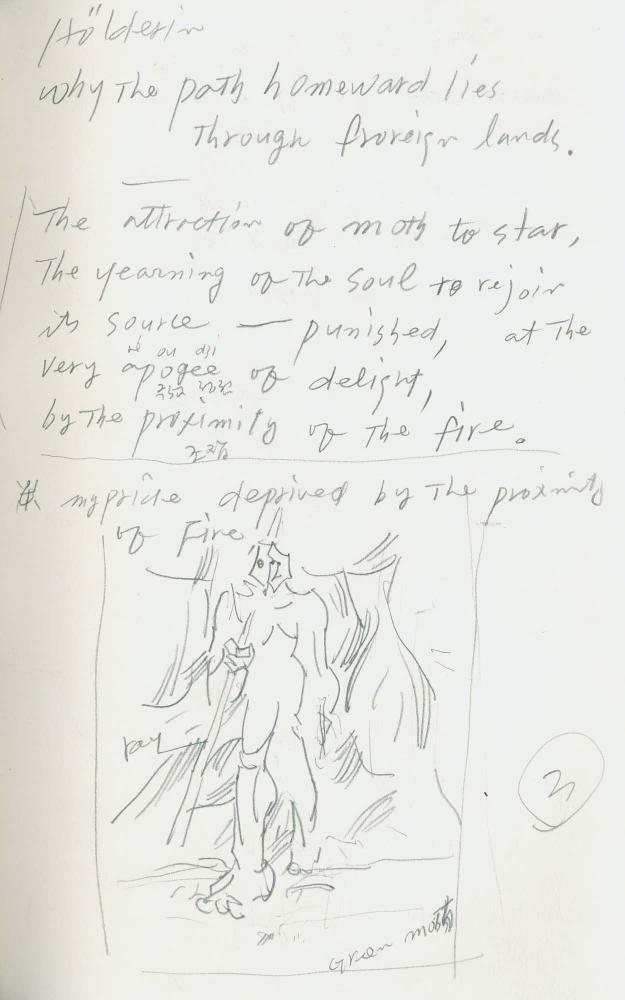 Hölderin
why The path homeward lies
Through froreign lands.
The attraction of moth to star,
The yearning of The Soul to rejoin
its source — punished, at The
very apogee of delight,
by The proximity of The fire.
my pride deprived by The proximity
of Fire
Green moth